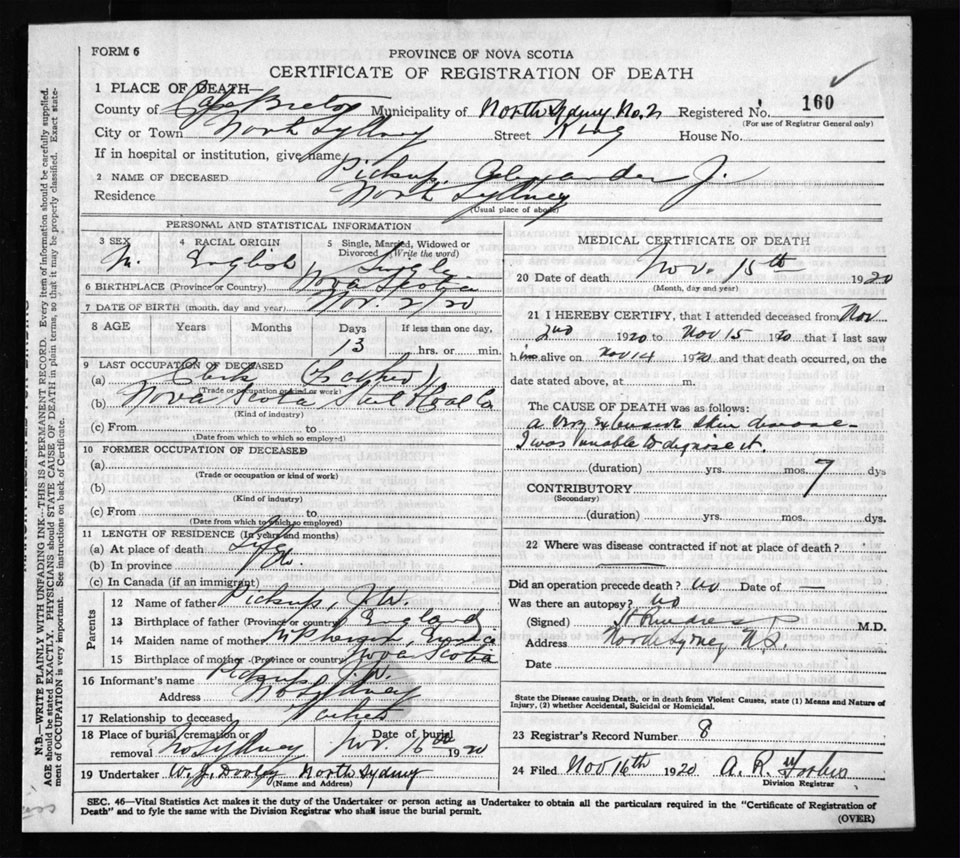 FORM 6
PROVINCE OF NOVA SCOTIA
CERTIFICATE OF REGISTRATION OF DEATH
1 PLACE OF DEATH
County of Cape Breton Municipality of North Sydney No. 2 Registered No. 160
(For use of Registrar General only)
City or Town North Sydney Street King House No.
If in hospital or institution, give name
2 NAME OF DECEASED Pickup, Alexander J.
Residence North Sydney
(Usual place of abode)
PERSONAL AND STATISTICAL INFORMATION
3 SEX 4 RACIAL ORIGIN 5 Single, Married, Widowed or Divorced (Write the word)
M. English Single
6 BIRTHPLACE (Province or Country) Nova Scotia
7 DATE OF BIRTH (month, day and year) Nov. 2/20
8 AGE Years Months Days If less than one day,
13 hrs. or min.
9 LAST OCCUPATION OF DECEASED
(a) Clerk (Father)
(Trade or occupation or kind of work)
(b) Nova Scotia Steel & Coal Co
(Kind of industry)
(c) From to
(Date from which to which so employed)
10 FORMER OCCUPATION OF DECEASED
(a)
(Trade or occupation or kind of work)
(b)
(Kind of industry)
(c) From to
(Date from which to which so employed)
11 LENGTH OF RESIDENCE (In years and months)
(a) At place of death Life
(b) In province do.
(c) In Canada (if an immigrant)
Parents
12 Name of father Pickup, J.W.
13 Birthplace of father (Province or country) England
14 Maiden name of mother
15 Birthplace of mother (Province or country) Nova Scotia
16 Informant's name Pickup, J.W.
Address No Sydney
17 Relationship to deceased Father
18 Place of burial, cremation or removal No Sydney Date of burial Nov. 16th 1920
19 Undertaker W. J. Dooley North Sydney
(Name and Address)
MEDICAL CERTIFICATE OF DEATH
20 Date of death Nov. 15th 1920
(Month, day and year)
21 I HEREBY CERTIFY, that I attended deceased from Nov
2nd 1920 to Nov 15 1920 that I last saw
him alive on Nov 14 1920 and that death occurred, on the
date stated above, at m.
The CAUSE OF DEATH was as follows:
a very extensive skin disease
I was unable to diagnose it.
(duration) yrs. mos. 7 dys
CONTRIBUTORY
(Secondary)
(duration) yrs. mos. dys.
22 Where was disease contracted if not at place of death?
Did an operation precede death? no Date of —
Was there an autopsy? no
(Signed) M.D.
Address North Sydney N.S.
Date
State the Disease causing Death, or in death from Violent Causes, state (1) Means and Nature of
Injury, (2) whether Accidental, Suicidal or Homicidal.
23 Registrar's Record Number 8
24 Filed Nov 16th 1920 A. R. Forbes
Division Registrar
SEC. 46—Vital Statistics Act makes it the duty of the Undertaker or person acting as Undertaker to obtain all the particulars required in the "Certificate of Registration of
Death" and to fyle the same with the Division Registrar who shall issue the burial permit.
(OVER)
N.B.—WRITE PLAINLY WITH UNFADING INK—THIS IS A PERMANENT RECORD. Every item of information should be carefully supplied.
AGE should be stated EXACTLY. PHYSICIANS should STATE CAUSE OF DEATH in plain terms, so that it may be properly classified. Exact state-
ment of OCCUPATION is very important. See instructions on back of Certificate.